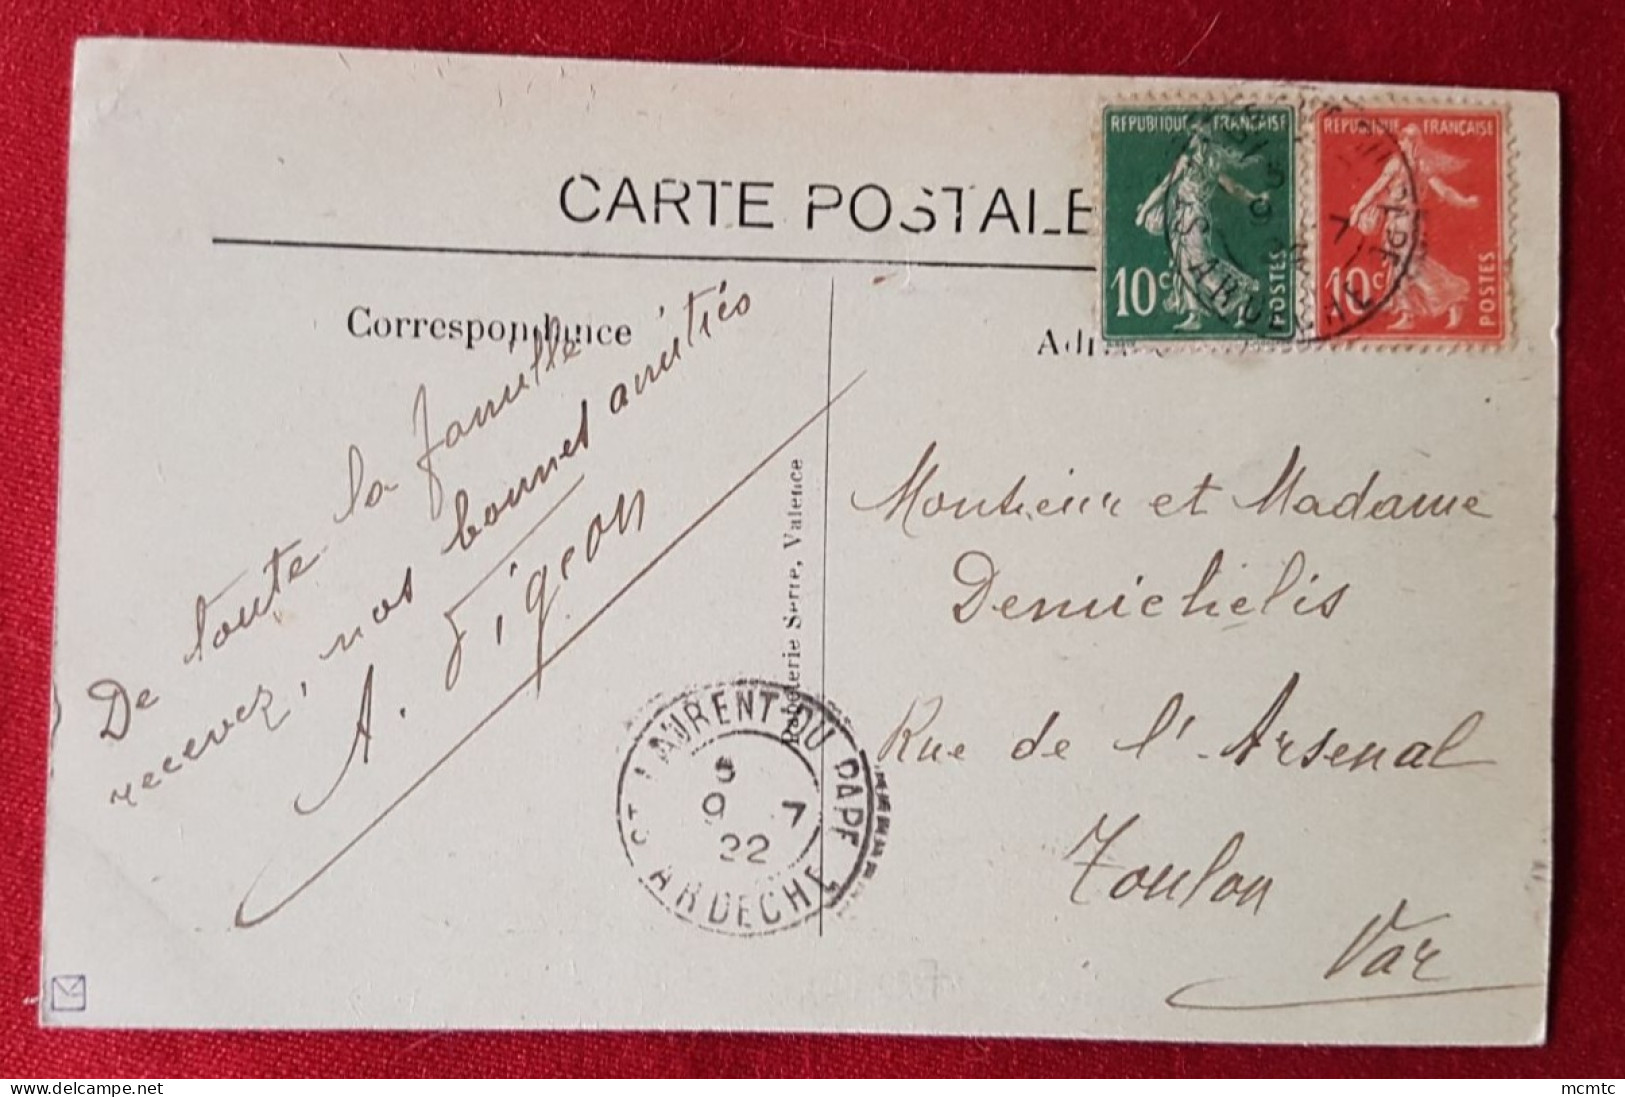 CARTE POSTALE
REPUBLIQUE FRANÇAISE
10c
POSTES
REPUBLIQUE FRANÇAISE
10c
POSTES
ARDECHE
Correspondance
De toute la famille
recevez, nos bonnes amitiés
A. Figeon
Rabeterie Serre, Valence
Monsieur et Madame
Demichelis
Rue de l'Arsenal
Toulon
Var
ST LAURENT-DU-PAPE
5
9 7
22
ARDECHE
mcmtc